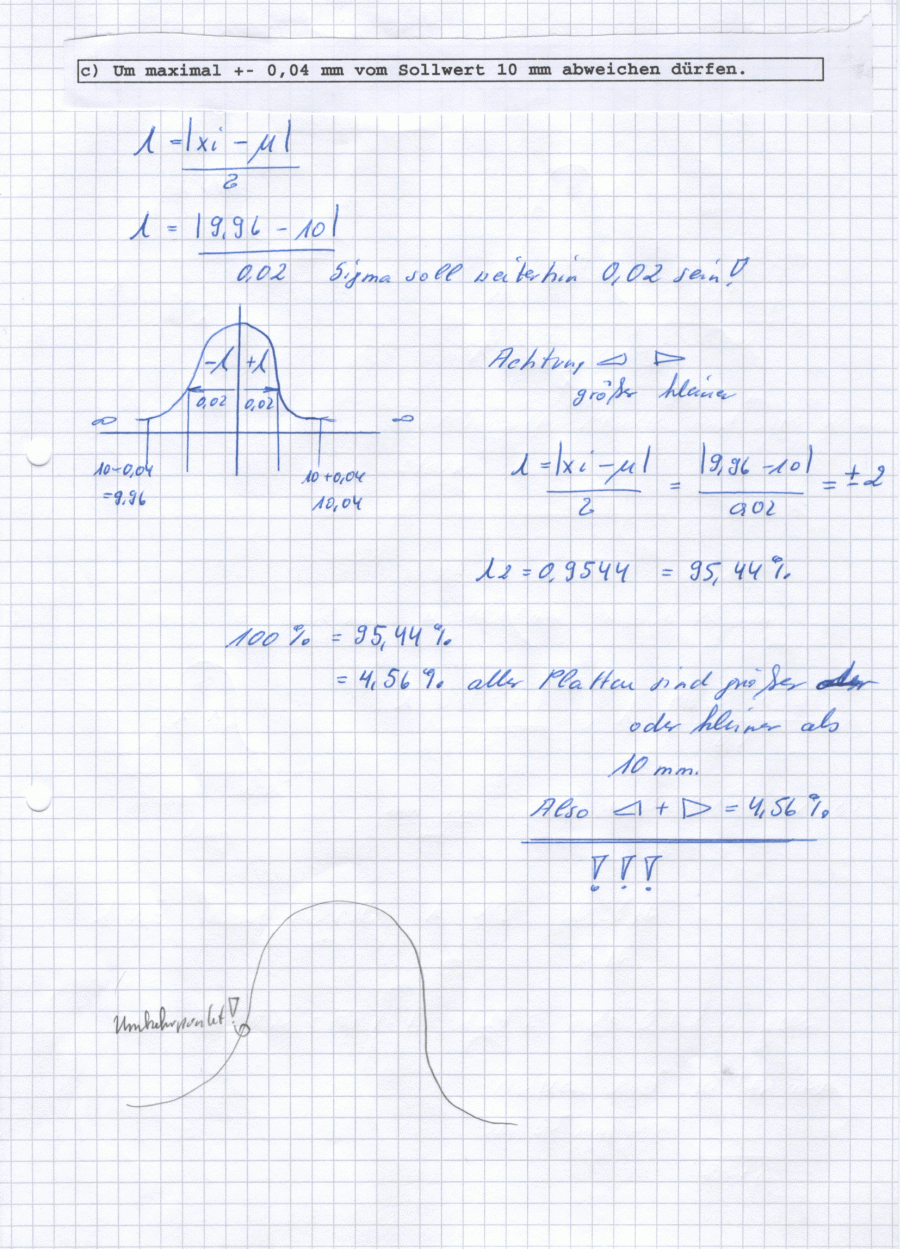 c) Um maximal +- 0,04 mm vom Sollwert 10 mm abweichen dürfen.
λ = |xi - μ|
2
λ = |9,96 - 10|
0,02 Sigma soll weiterhin 0,02 sein!
-λ +λ
0,02 0,02
∞ ∞
10-0,04
=9,96
10+0,04
10,04
Achtung ◁ ▷
größer kleiner
λ = |xi - μ| = |9,96 - 10| = ±2
2 0,02
λ2 = 0,9544 = 95,44 %
100 % = 95,44 %
= 4,56 % aller Platten sind größer
oder kleiner als
10 mm.
Also ◁ + ▷ = 4,56 %
!!!
Umkehrpunkt!